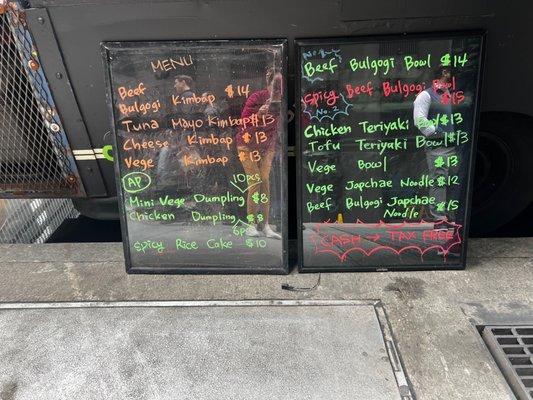 MENU
Beef
Bulgogi Kimbap $14
Tuna Mayo Kimbap $13
Cheese Kimbap $13
Vege Kimbap $13
AP
10pcs
Mini Vege Dumpling $8
Chicken Dumpling $8
6pcs
Spicy Rice Cake $10
No. 1
Beef Bulgogi Bowl $14
Spicy Beef Bulgogi Bowl
$15
Chicken Teriyaki Bowl $13
Tofu Teriyaki Bowl $13
Vege Bowl $13
Vege Japchae Noodle $12
Beef Bulgogi Japchae
Noodle $15
CASH → TAX FREE